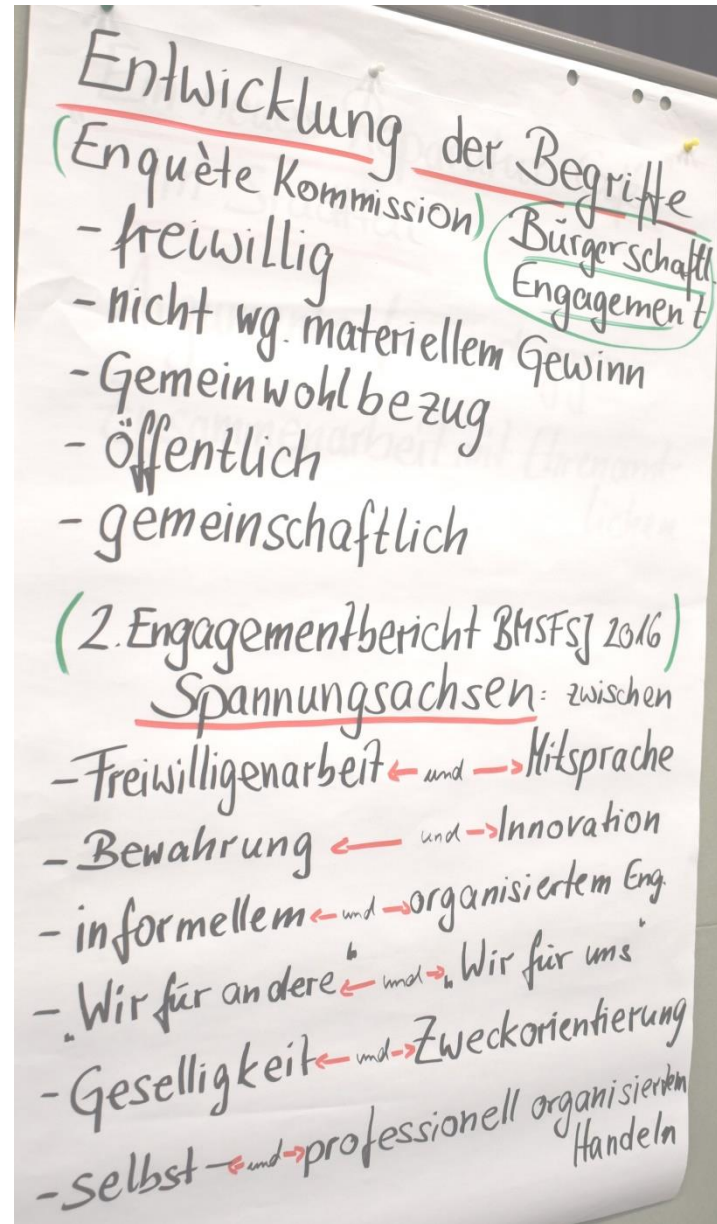 Entwicklung der Begriffe
(Enquète Kommission)
Bürgerschaftl.
Engagement
- freiwillig
- nicht wg. materiellem Gewinn
- Gemeinwohlbezug
- öffentlich
- gemeinschaftlich
(2. Engagementbericht BMSFSJ 2016)
Spannungsachsen: zwischen
- Freiwilligenarbeit ← und → Mitsprache
- Bewahrung ← und → Innovation
- informellem ← und → organisiertem Eng.
- „Wir für andere" ← und → „Wir für uns"
- Geselligkeit ← und → Zweckorientierung
- selbst- ← und → professionell organisiertem
Handeln